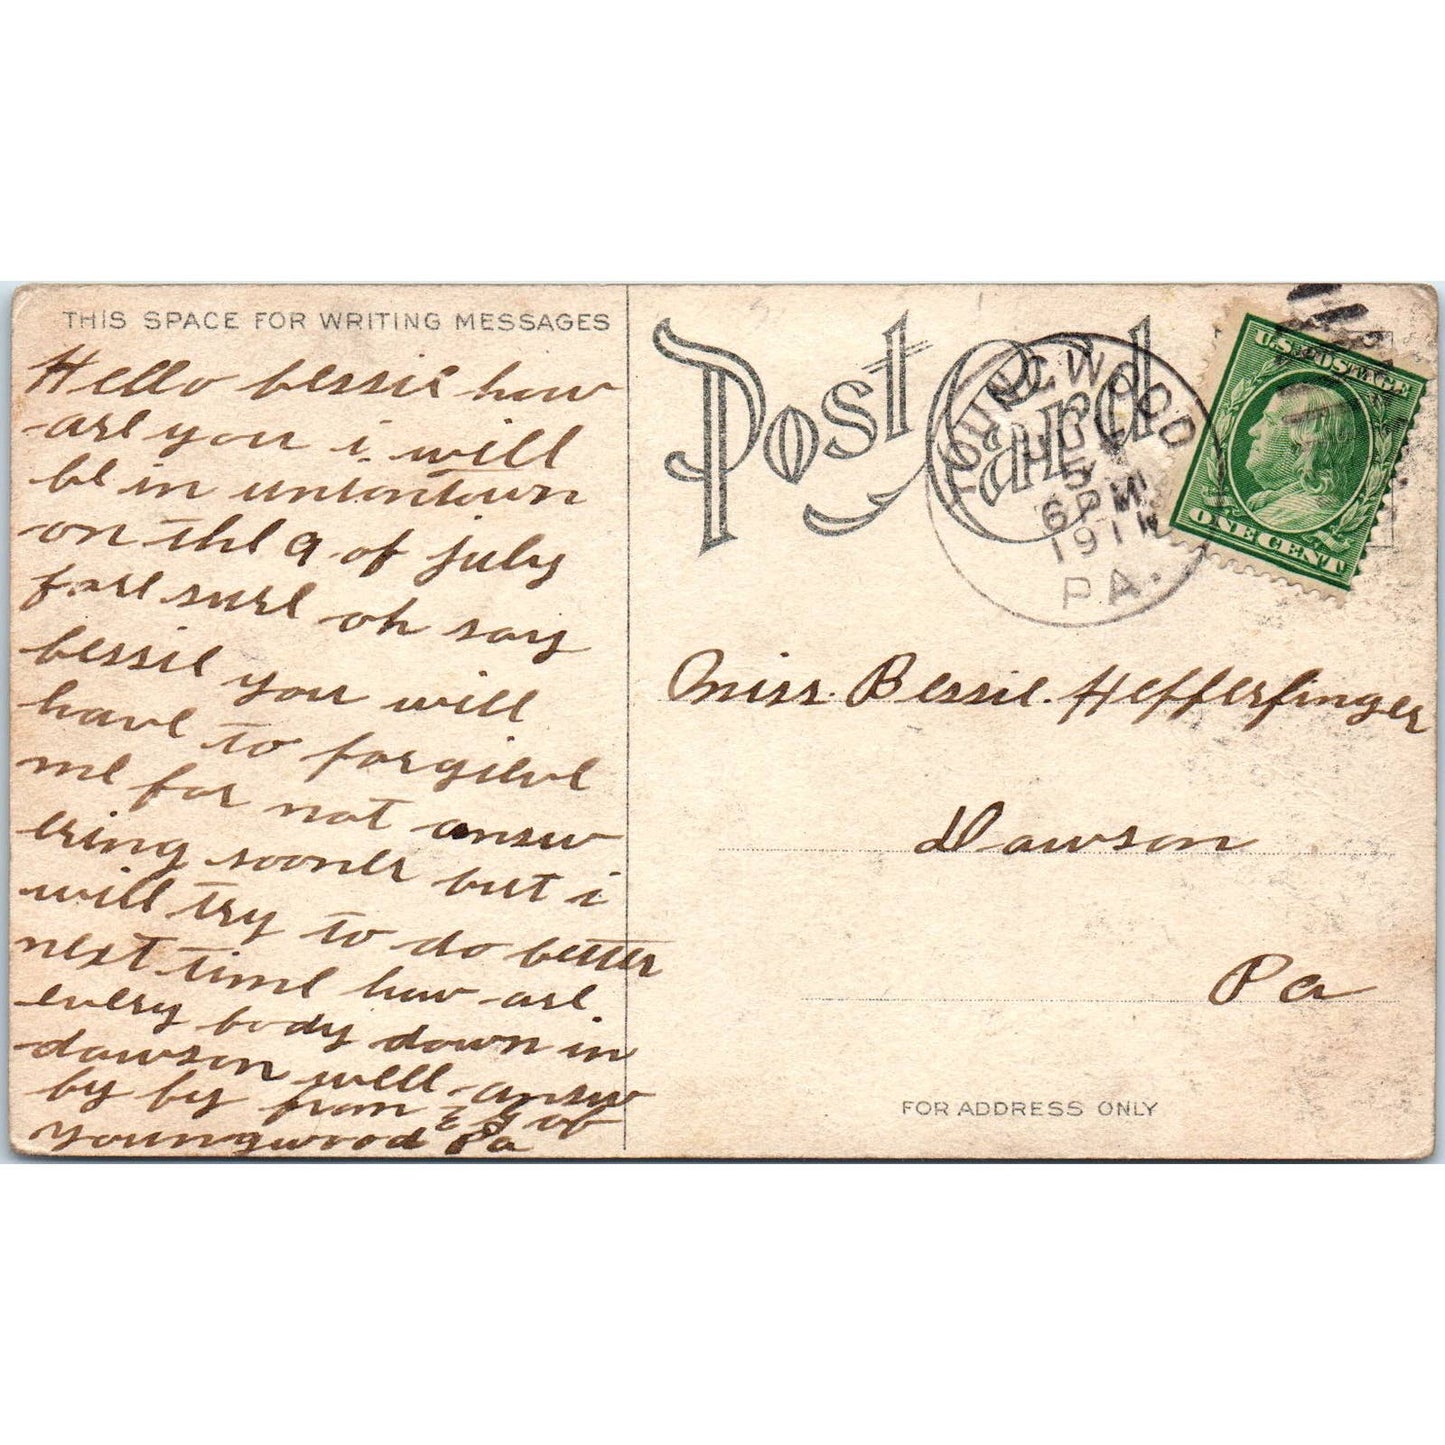 THIS SPACE FOR WRITING MESSAGES
Hello bessie how
are you i will
be in uniontown
on the 9 of july
fore sure oh say
bessie you will
have to forgieve
me for not answ
ering sooner but i
will try to do better
next time how are
every body down in
dawson well answ
by by from
youngwood Pa
Post Card
YOUNGWOOD
JUL
5
6 PM
191
PA.
U.S. POSTAGE
ONE CENT
Miss. Bessie. Hefferfinger
Dawson
Pa
FOR ADDRESS ONLY